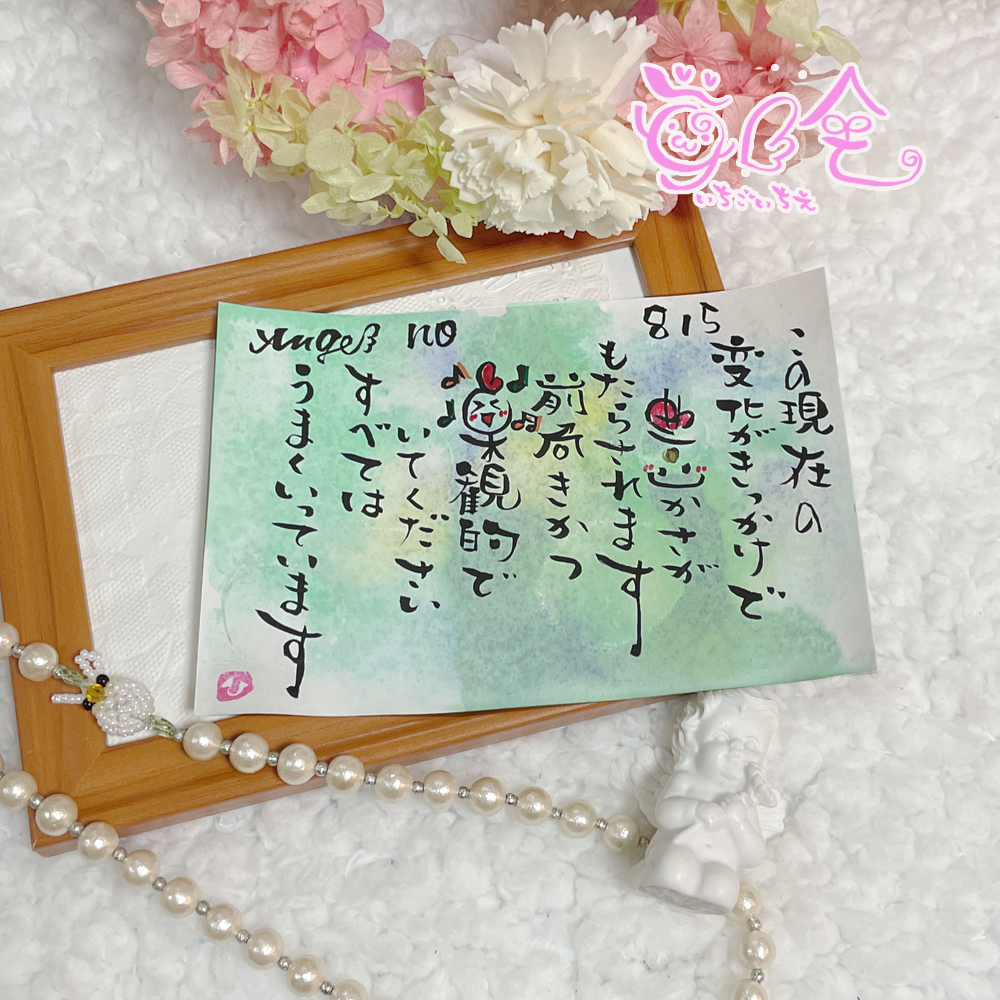 いちごいちえ
Angel no 815
この現在の
変化がきっかけで
豊かさが
もたらされます
前向きかつ
楽観的で
いてください
すべては
うまくいっています